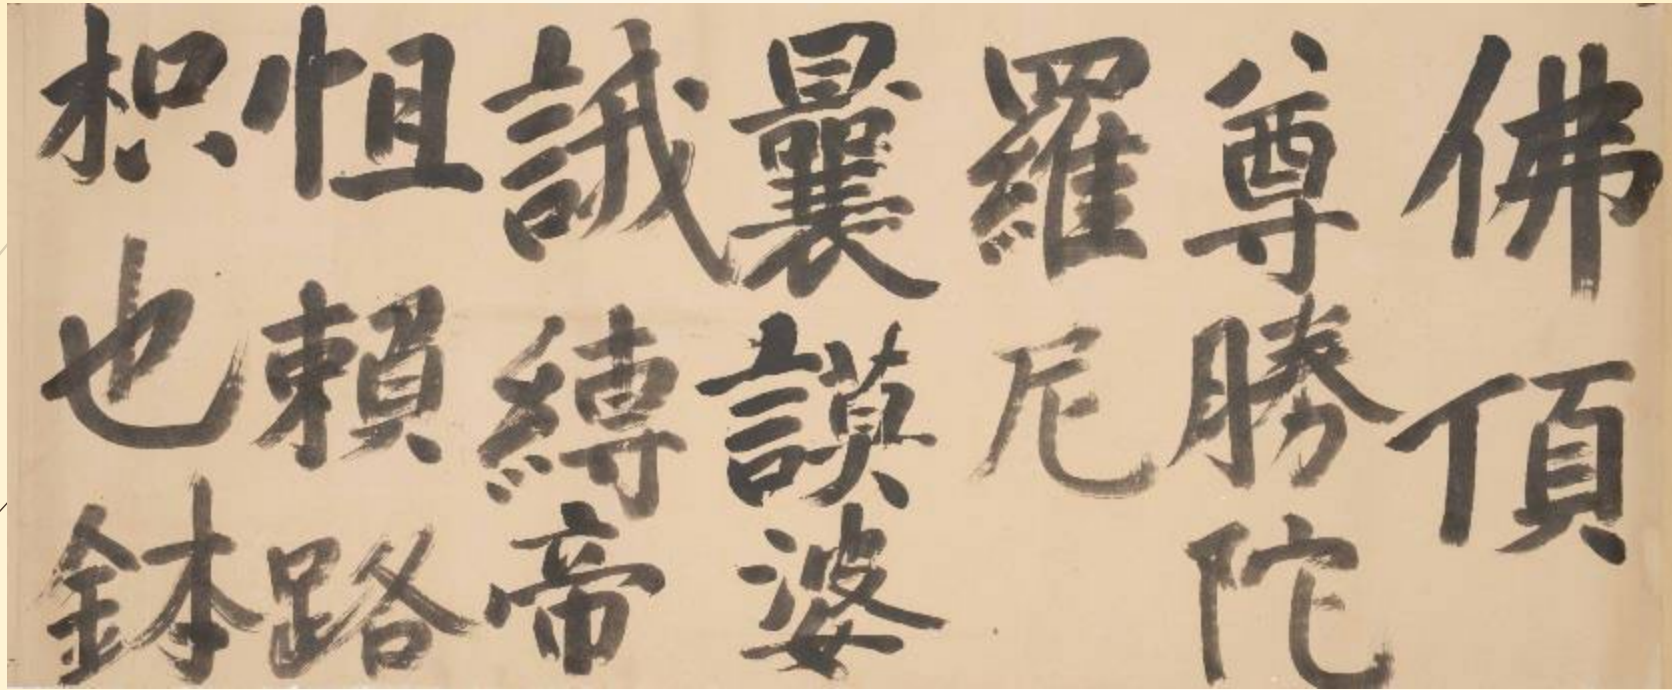 佛頂
尊勝陀
羅尼
曩謨婆
誐縛帝
怛賴路
枳也鉢